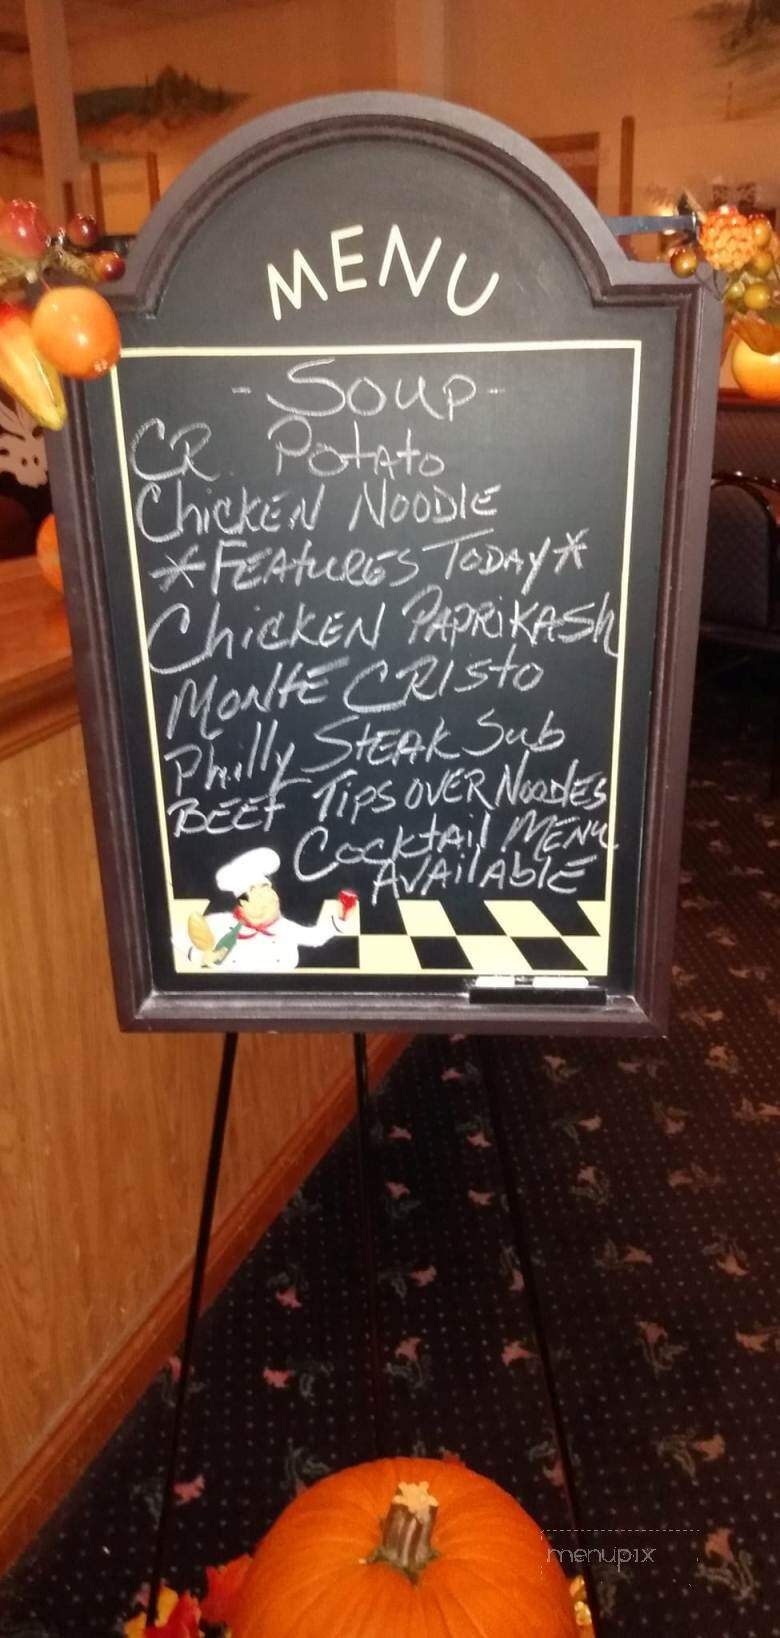 MENU
-Soup-
CR. Potato
Chicken Noodle
*Features Today*
Chicken Paprikash
Monte Cristo
Philly Steak Sub
Beef Tips over Noodles
Cocktail Menu
Available
menupix